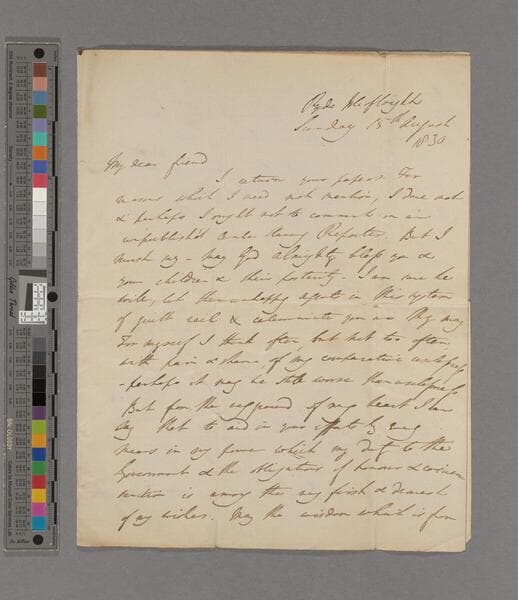 Ryde Isle of Wight
Sunday 15th August
1830
My dear friend
I return your papers. For
reasons which I need not mention, I dare not
& perhaps I ought not to comment on an
unpublished Anti Slavery Reporter. But I
must say - may God Almighty bless you &
your children & their posterity. I am sure he
will, let them
of
For myself I think often, but not too often
with pain & shame, of my comparative uselessness
- perhaps it may be still worse than uselessness.
But from the very ground of my heart I can
say that to aid in your efforts by every
means in my power which my duty to the
Government & the obligations of honour &
is among the very first & dearest
of my wishes. May the wisdom which is from